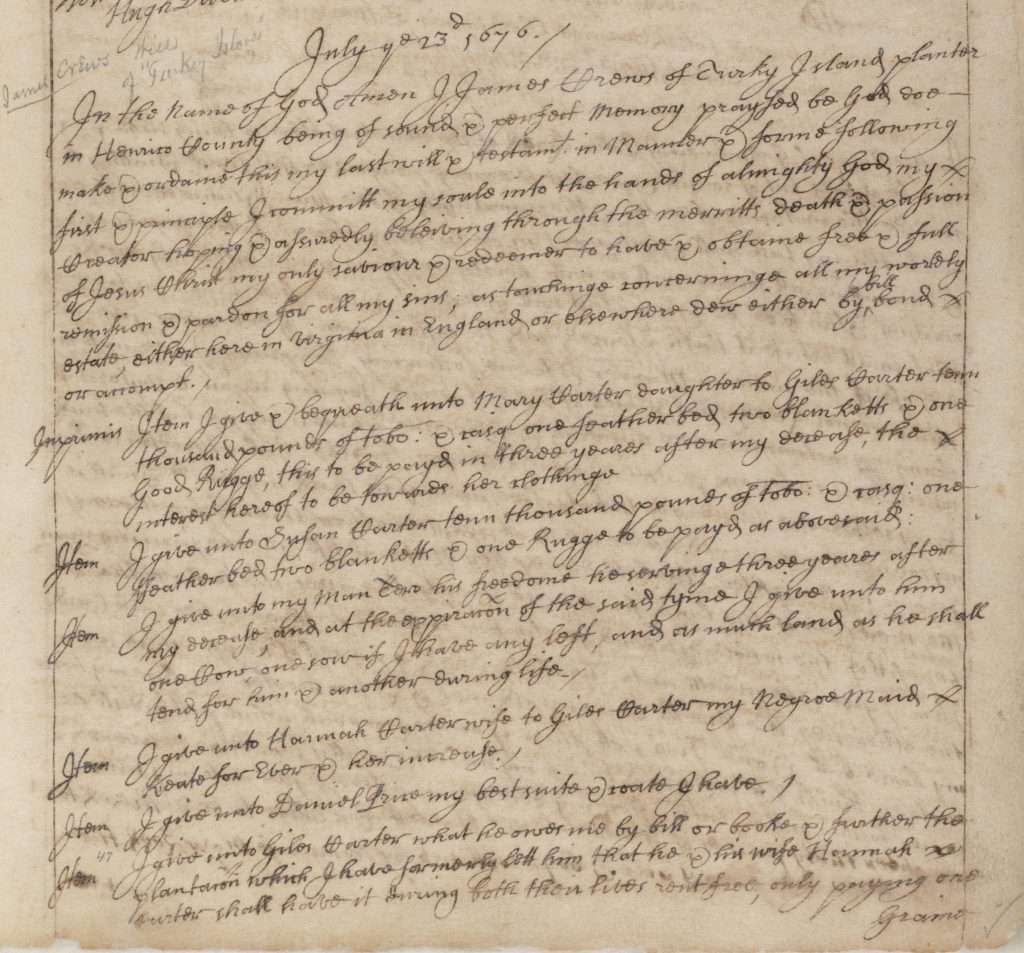 Hugh
James Crews Will
of "Turkey Island"
July ye 23d 1676.
In the Name of God Amen I James Crews of Turky Island planter
in Henrico County being of sound & perfect Memory praysed be God doe
make & ordaine this my last will & testamt. in Manner & forme following
first & principle I committ my soule into the hands of almighty God my
Creator hoping & assuredly beleiving through the merritts death & passion
of Jesus Christ my only saviour & redeemer to have & obtaine free & full
remission & pardon for all my sins; as touchinge concerninge all my worldly
estate, either here in Virginia in England or elsewhere dew either by bill bond
or accompt.
Inprimis Item I give & bequeath unto Mary Carter daughter to Giles Carter tenn
thousand pounds of tobo: & casq one feather bed two blanketts & one
Good Rugge, this to be payd in three yeares after my decease, the
interest hereof to be towards her clothinge
Item I give unto Susan Carter tenn thousand pounds of tobo: & casq: one
Feather bed two blanketts & one Rugge to be payd as abovesaid:
Item I give unto my Man Cero his freedome he servinge three yeares after
my decease, and at the expiracōn of the said tyme I give unto him
one Cow, one sow if I have any left, and as much land as he shall
tend for him & another during life.
Item I give unto Hannah Carter wife to Giles Carter my Negroe Maid
Keate for Ever & her increase.
Item I give unto Daniel Price my best suite & coate I have.
47
Item I give unto Giles Carter what he owes me by bill or booke & further the
plantacōn which I have formerly lett him that he & his wife Hannah
Carter shall have it during both their lives rent free, only paying one
Graine